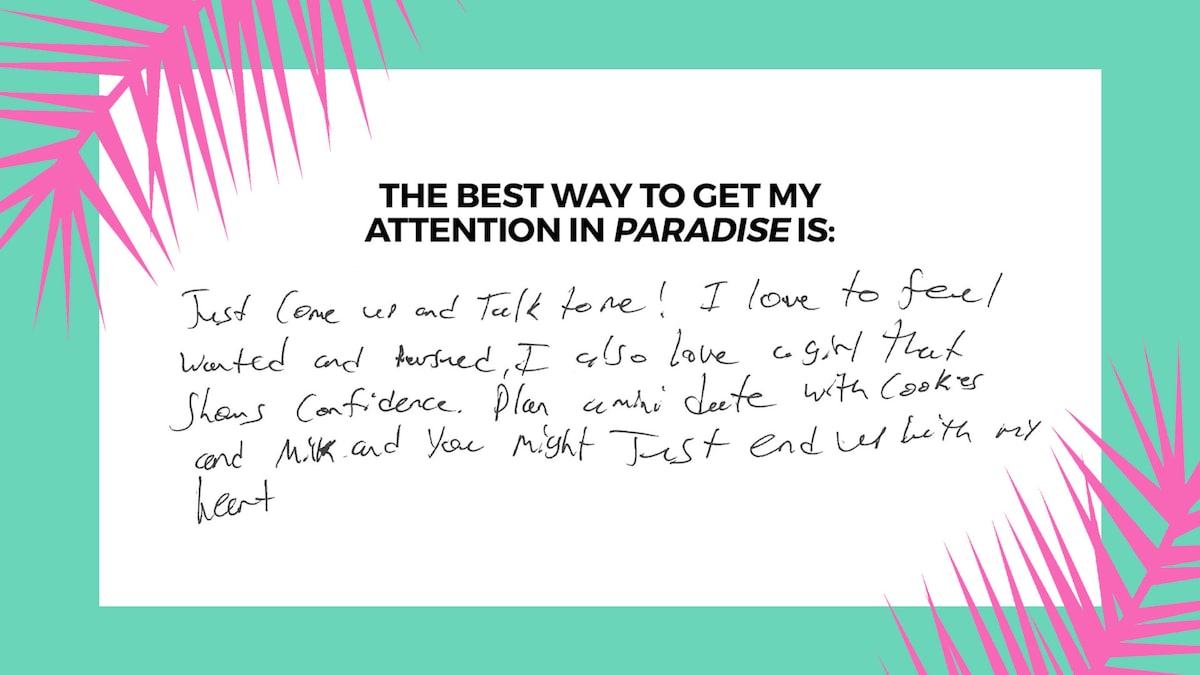 THE BEST WAY TO GET MY
ATTENTION IN PARADISE IS:
Just Come up and Talk to me! I love to feel
wanted and , I also love a girl that
Shows Confidence. Plan a mini date with Cookies
and Milk and you might Just end up with my
heart